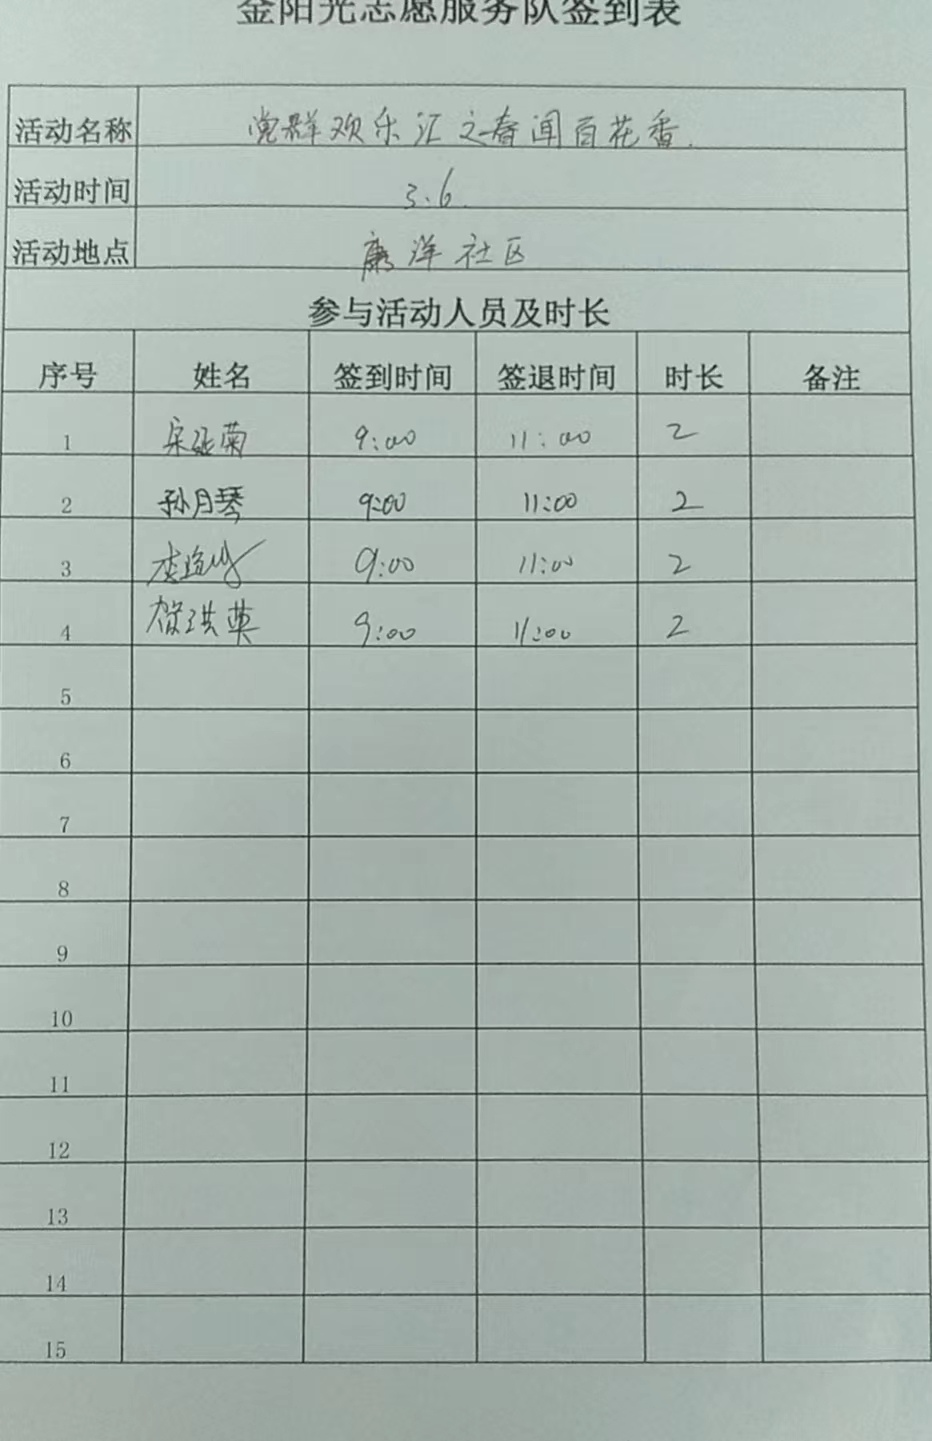 金阳光志愿服务队签到表
活动名称 党群欢乐汇之春闻百花香.
活动时间 3.6.
活动地点 康洋社区
参与活动人员及时长
序号 姓名 签到时间 签退时间 时长 备注
1 9:00 11:00 2
2 孙月琴 9:00 11:00 2
3 9:00 11:00 2
4 贺洪英 9:00 11:00 2
5
6
7
8
9
10
11
12
13
14
15